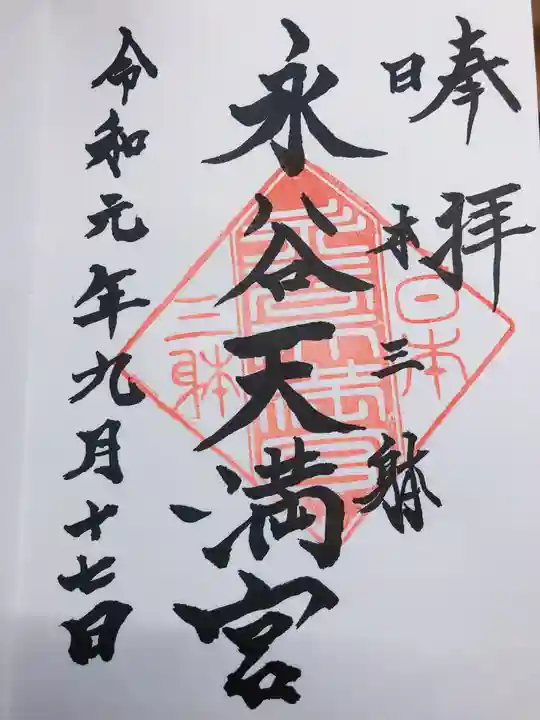 奉拝
日本三躰
永谷天満宮
令和元年九月十七日
日本
三躰